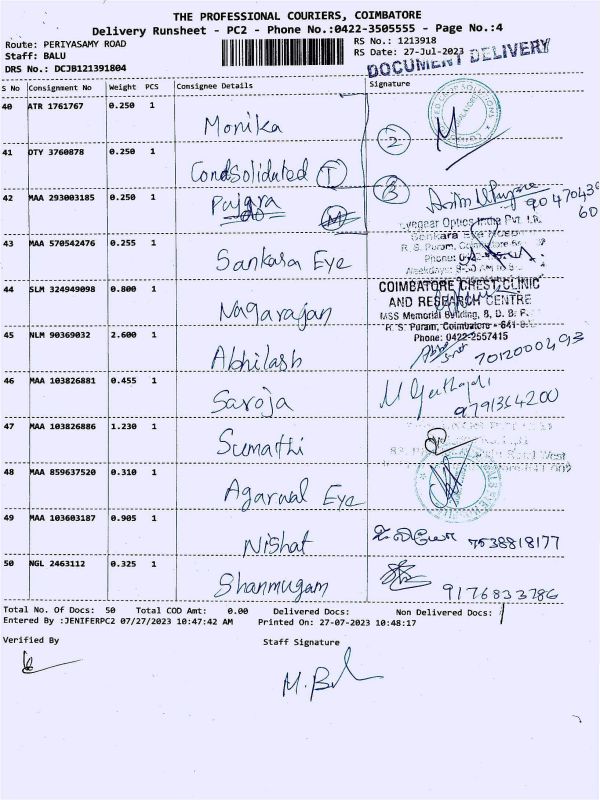 THE PROFESSIONAL COURIERS, COIMBATORE
Delivery Runsheet - PC2 - Phone No.:0422-3505555 - Page No.:4
Route: PERIYASAMY ROAD
RS No.: 1213918
Staff: BALU
RS Date: 27-Jul-2023
DRS No.: DCJB121391804
DOCUMENT DELIVERY
S No Consignment No Weight PCS Consignee Details Signature
40 ATR 1761767 0.250 1 Monika
2
41 DTY 3760878 0.250 1 Condsolidated T
3
42 MAA 293003185 0.250 1 Pujara
Eyegear Optics India Pvt. Ltd.
43 MAA 570542476 0.255 1 Sankara Eye
R. S. Puram,
44 SLM 324949098 0.800 1 Nagarajan
COIMBATORE CHEST CLINIC
AND RESEARCH CENTRE
MSS Memorial Building, 8, D. B.
R. S. Puram, Coimbatore - 641
Phone: 0422-2557415
45 NLM 90369032 2.600 1 Abhilash 7012000493
46 MAA 103826881 0.455 1 Saroja 9791364200
47 MAA 103826886 1.230 1 Sumathi
48 MAA 859637520 0.310 1 Agarwal Eye
49 MAA 103603187 0.905 1 Nishat 7538818177
50 NGL 2463112 0.325 1 Shanmugam 9176833786
Total No. Of Docs: 50 Total COD Amt: 0.00 Delivered Docs: Non Delivered Docs:
Entered By :JENIFERPC2 07/27/2023 10:47:42 AM Printed On: 27-07-2023 10:48:17
Verified By Staff Signature